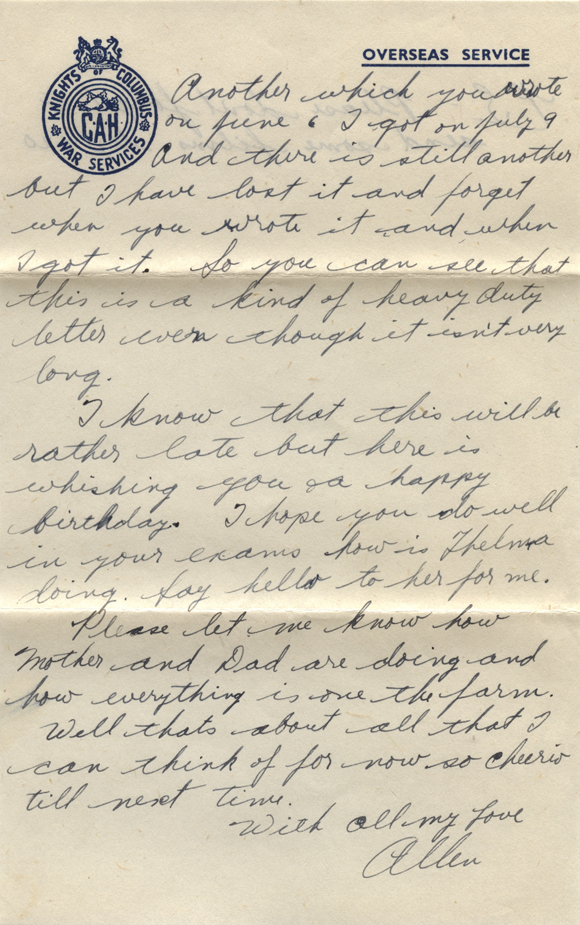 OVERSEAS SERVICE
KNIGHTS OF COLUMBUS
C.A.H
WAR SERVICES
Another which you wrote
on june 6 I got on july 9
And there is still another
but I have lost it and forget
when you wrote it and when
I got it. So you can see that
this is a kind of heavy duty
letter even though it isn't very
long.
I know that this will be
rather late but here is
whishing you a happy
birthday. I hope you do well
in your exams how is Thelma
doing. Say hello to her for me.
Please let me know how
Mother and Dad are doing and
how everything is one the farm.
Well thats about all that I
can think of for now so cheerio
till next time.
With all my love
Allen